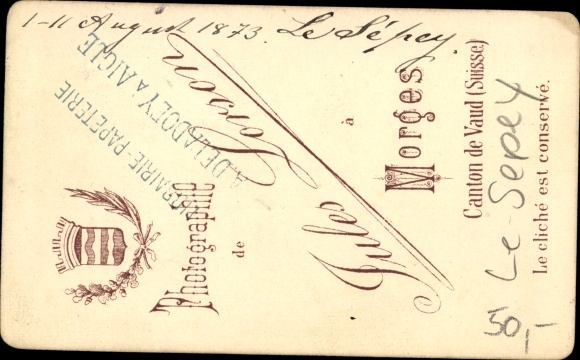 1-11 August 1873. Le Sépey.
LIBRAIRIE-PAPETERIE
A. DELLADOEY A AIGLE
Photographie
de
Jules
à
Morges
Canton de Vaud (Suisse)
Le cliché est conservé.
Le Sepey
50,-